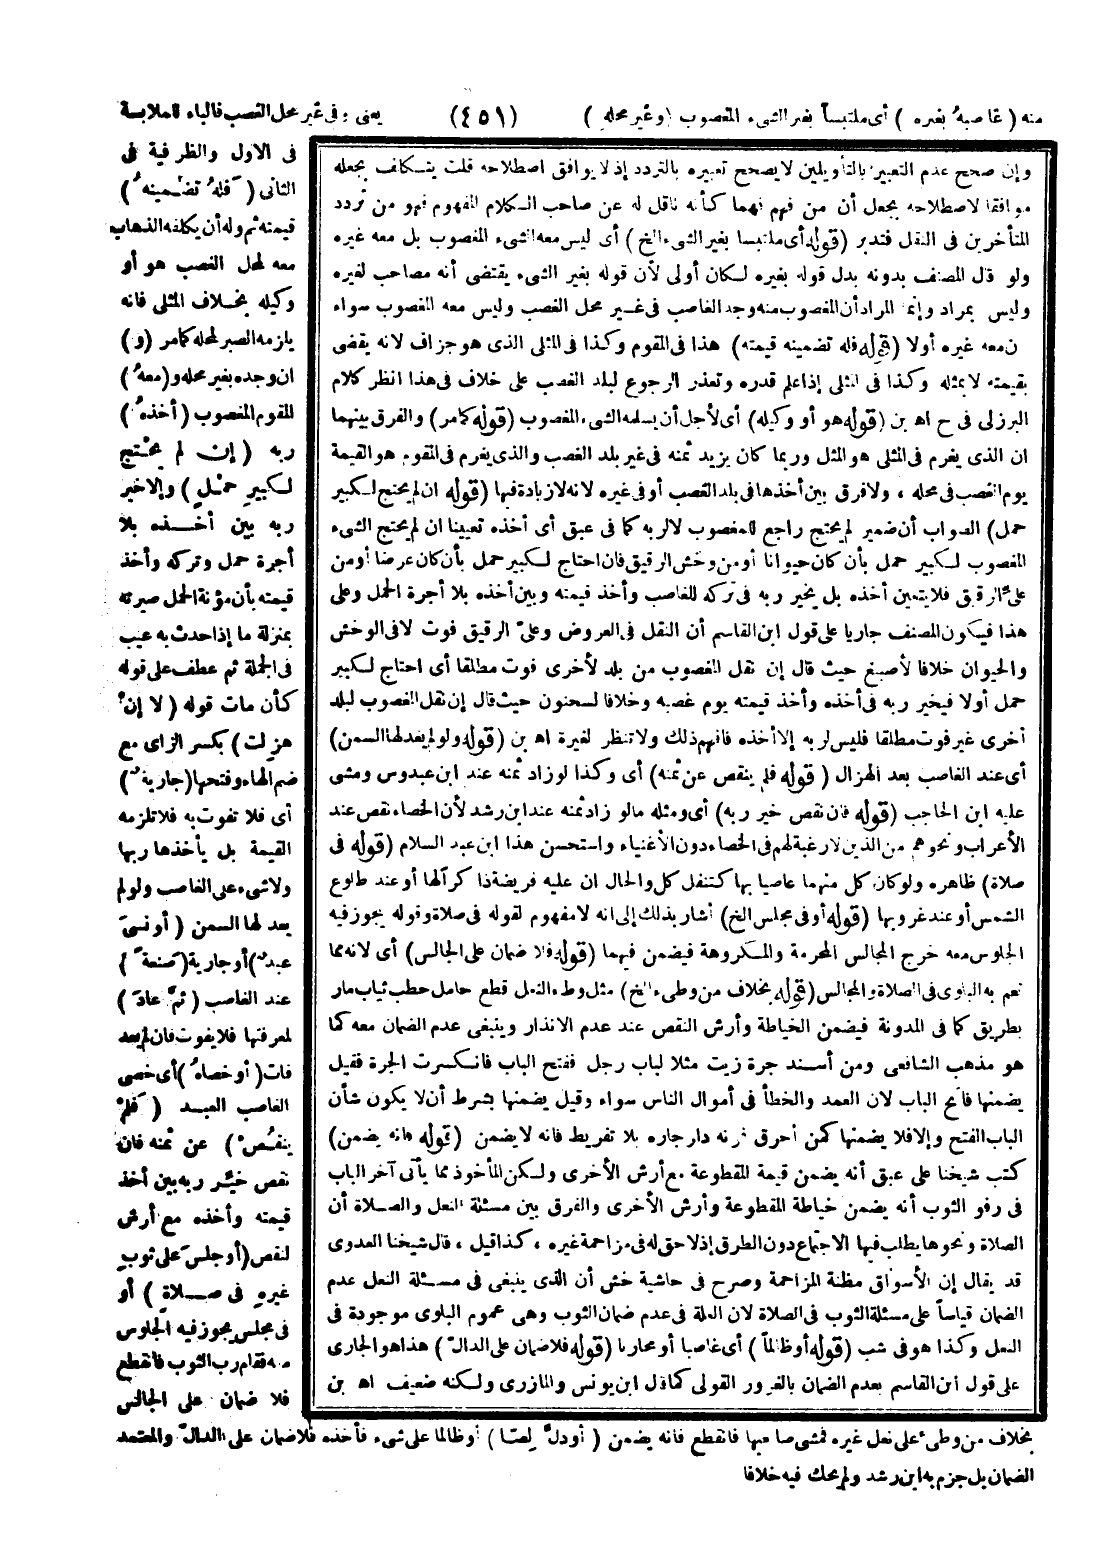 منه ( غاصبه بغيره ) أى ملتبسا بغير الشىء المغصوب ( وغير محله ) (٤٥١) يعنى : فى غير محل الغصب فالباء للملابسة
فى الاول والظرفية فى
الثانى ( فله تضمينه )
قيمته ثم وله أن يكلفه الذهاب
معه لمحل الغصب هو أو
وكيله بخلاف المثلى فانه
يلزمه الصبر لمحله كما مر (و)
ان وجده بغير محله و(معه)
المقوم المغصوب ( أخذه )
ربه ( إن لم يحتج
لكبير حمل ) وإلا خير
ربه بين أخذه بلا
أجرة حمل وتركه وأخذ
قيمته بأن مؤنة الحمل صيرته
بمنزلة ما إذا حدث به عيب
فى الجملة ثم عطف على قوله
كأن مات قوله ( لا إن
هزلت ) بكسر الزاى مع
ضم الهاء وفتحها (جارية)
أى فلا تفوت به فلا تلزمه
القيمة بل يأخذها ربها
ولا شىء على الغاصب ولو لم
يعد لها السمن ( أو نسى
عبد) أو جارية (صنعة)
عند الغاصب ( ثم عاد )
لمعرفتها فلا يفوت فان لم يعد
فات ( أو خصاه ) أى خصى
الغاصب العبد ( فلم
ينقص ) عن ثمنه فان
نقص خير ربه بين أخذ
قيمته وأخذه مع أرش
لنقص (أو جلس على ثوب
غيره فى صلاة ) أو
فى مجلس يجوز فيه الجلوس
معه فقام رب الثوب فانقطع
فلا ضمان على الجالس
بخلاف من وطىء على نعل غيره فمشى صاحبها فانقطع فانه يضمن ( أو دل لصا ) أو ظالما على شىء فأخذه فلا ضمان على الدال والمعتمد
الضمان بل جزم به ابن رشد ولم يحك فيه خلافا
وإن صحح عدم التعبير بالتأويلين لا يصحح تعبيره بالتردد إذ لا يوافق اصطلاحه قلت يتكلف بجعله
موافقا لاصطلاحه بجعل أن من فهم فهما كأنه ناقل له عن صاحب الكلام المفهوم فهو من تردد
المتأخرين فى النقل فتدبر (قوله أى ملتبسا بغير الشىء الخ ) أى ليس معه الشىء المغصوب بل معه غيره
ولو قال المصنف بدونه بدل قوله بغيره لكان أولى لأن قوله بغير الشىء يقتضى أنه مصاحب لغيره
وليس بمراد وإنما المراد أن المغصوب منه وجد الغاصب فى غير محل الغصب وليس معه المغصوب سواء
كان معه غيره أولا (قوله فله تضمينه قيمته) هذا فى المقوم وكذا فى المثلى الذى هو جزاف لانه يقضى
بقيمته لا بمثله وكذا فى المثلى إذا علم قدره وتعذر الرجوع لبلد الغصب على خلاف فى هذا انظر كلام
البرزلى فى ح اه بن (قوله هو أو وكيله) أى لأجل أن يسلمه الشىء المغصوب (قوله كما مر) والفرق بينهما
ان الذى يغرم فى المثلى هو المثل وربما كان يزيد ثمنه فى غير بلد الغصب والذى يغرم فى المقوم هو القيمة
يوم الغصب فى محله ، ولا فرق بين أخذها فى بلد الغصب أو فى غيره لانه لا زيادة فيها (قوله ان لم يحتج لكبير
حمل) الصواب أن ضمير لم يحتج راجع للمغصوب لا لربه كما فى عبق أى أخذه تعيينا ان لم يحتج الشىء
المغصوب لكبير حمل بأن كان حيوانا أو من وخش الرقيق فان احتاج لكبير حمل بأن كان عرضا أو من
على الرقيق فلا يتعين أخذه بل يخير ربه فى تركه للغاصب وأخذ قيمته وبين أخذه بلا أجرة الحمل وعلى
هذا فيكون المصنف جاريا على قول ابن القاسم أن النقل فى العروض وعلى الرقيق فوت لا فى الوخش
والحيوان خلافا لأصبغ حيث قال إن نقل المغصوب من بلد لأخرى فوت مطلقا أى احتاج لكبير
حمل أولا فيخير ربه فى أخذه وأخذ قيمته يوم غصبه وخلافا لسحنون حيث قال إن نقل المغصوب لبلد
أخرى غير فوت مطلقا فليس لربه إلا أخذه فافهم ذلك ولا تنظر لغيره اه بن (قوله ولو لم يعد لها السمن)
أى عند الغاصب بعد الهزال ( قوله فلم ينقص عن ثمنه) أى وكذا لو زاد ثمنه عند ابن عبدوس ومشى
عليه ابن الحاجب (قوله فان نقص خير ربه) أى ومثله ما لو زاد ثمنه عند ابن رشد لأن الخصاء نقص عند
الأعراب ونحوهم من الذين لا رغبة لهم فى الخصاء دون الأغنياء واستحسن هذا ابن عبد السلام (قوله فى
صلاة) ظاهره ولو كان كل منهما عاصيا بها كتنفل كل والحال ان عليه فريضة ذاكرا لها أو عند طلوع
الشمس أو عند غروبها (قوله أو فى مجلس الخ) أشار بذلك إلى انه لا مفهوم لقوله فى صلاة وقوله يجوز فيه
الجلوس معه خرج المجالس المحرمة والمكروهة فيضمن فيهما (قوله فلا ضمان على الجالس) أى لانه مما
تعم به البلوى فى الصلاة والمجالس (قوله بخلاف من وطىء الخ) مثل وطء النعل قطع حامل حطب ثياب مار
بطريق كما فى المدونة فيضمن الخياطة وأرش النقص عند عدم الانذار وينبغى عدم الضمان معه كما
هو مذهب الشافعى ومن أسند جرة زيت مثلا لباب رجل ففتح الباب فانكسرت الجرة فقيل
يضمنها فاتح الباب لان العمد والخطأ فى أموال الناس سواء وقيل يضمنها بشرط أن لا يكون شأن
الباب الفتح وإلا فلا يضمنها كمن أحرق فرنه دار جاره بلا تفريط فانه لا يضمن (قوله فانه يضمن)
كتب شيخنا على عبق أنه يضمن قيمة المقطوعة مع أرش الأخرى ولكن المأخوذ مما يأتى آخر الباب
فى رفو الثوب أنه يضمن خياطة المقطوعة وأرش الأخرى والفرق بين مسئلة النعل والصلاة أن
الصلاة ونحوها يطلب فيها الاجتماع دون الطرق إذ لا حق له فى مزاحمة غيره ، كذا قيل ، قال شيخنا العدوى
قد يقال إن الأسواق مظنة المزاحمة وصرح فى حاشية خش أن الذى ينبغى فى مسئلة النعل عدم
الضمان قياساً على مسئلة الثوب فى الصلاة لان العلة فى عدم ضمان الثوب وهى عموم البلوى موجودة فى
النعل وكذا هو فى شب (قوله أو ظالما) أى غاصبا أو محاربا (قوله فلا ضمان على الدال) هذا هو الجارى
على قول ابن القاسم بعدم الضمان بالغرور القولى كما قال ابن يونس والمازرى ولكنه ضعيف اه بن